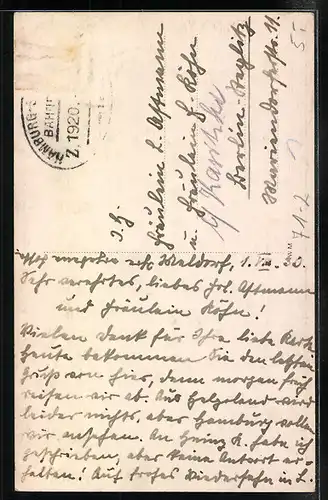 HAMBURG
BAHN
Z. 1920.
Fräulein L. Astmann
u. Fräulein E. Köhn
c/
Berlin-Steglitz
Mariendorferstr. 11.
5-
71.2
Meldorf, 1.
Sehr verehrtes, liebes Frl. Astmann
und Fräulein Köhn!
Vielen Dank für Ihre liebe Karte
Heute bekommen Sie den letzten
Gruß von hier, denn morgen früh
reisen wir ab. Aus Helgoland wird
leider nichts, aber Hamburg wollen
wir ansehen. An Heinz K. habe ich
geschrieben, aber keine Antwort er-
halten! Auf frohes Wiedersehn in L.